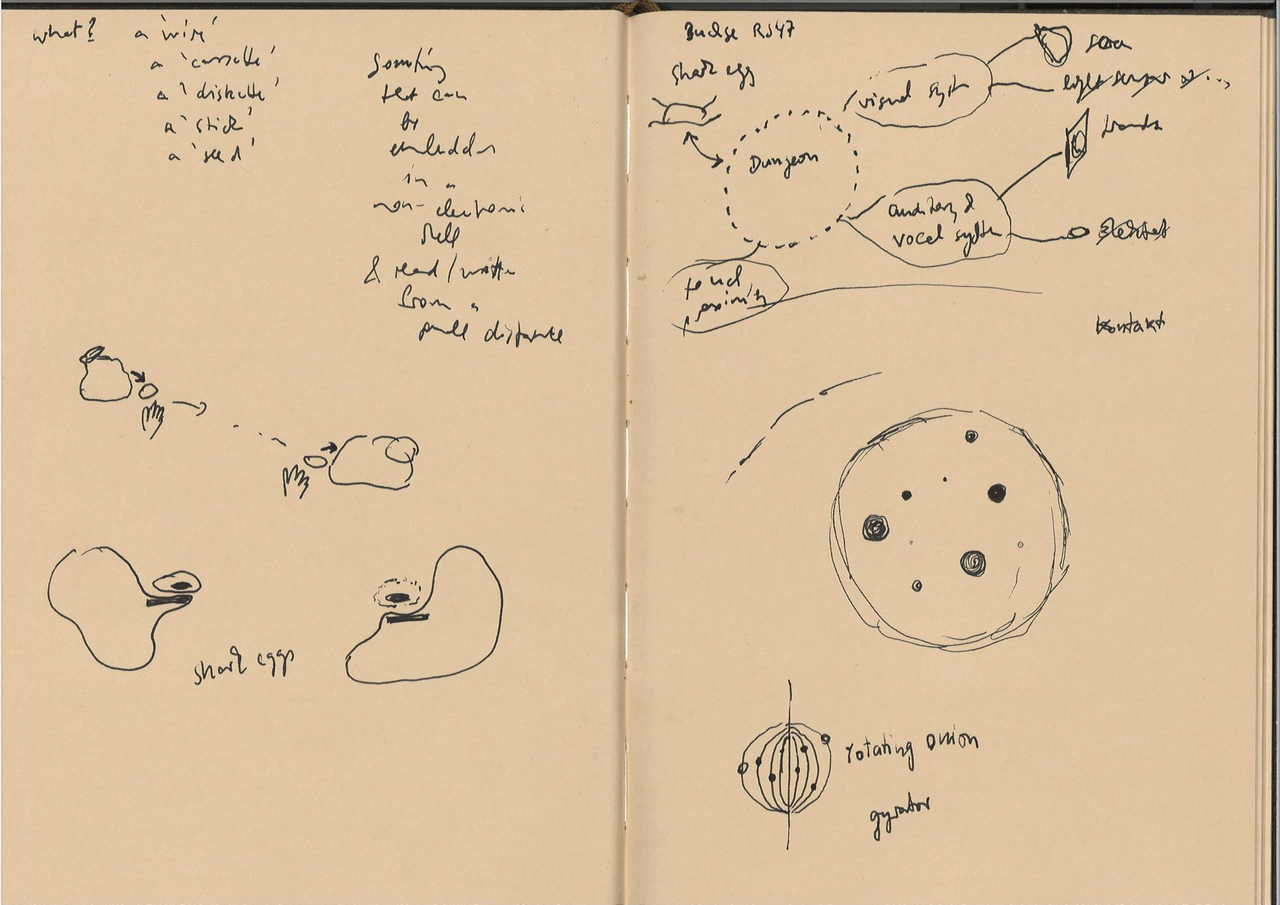 what? a 'wire'
a 'cassette'
a 'diskette'
a 'stick'
a 'seed'
Something
that can
be
embedded
in a
non-electronic
shell
& read/written
from a
small distance
shark eggs
Budge RJ47
shark egg
Dungeon
visual system
light sensor
auditory &
vocal system
touch
proximity
kontakt
rotating onion
gyrator